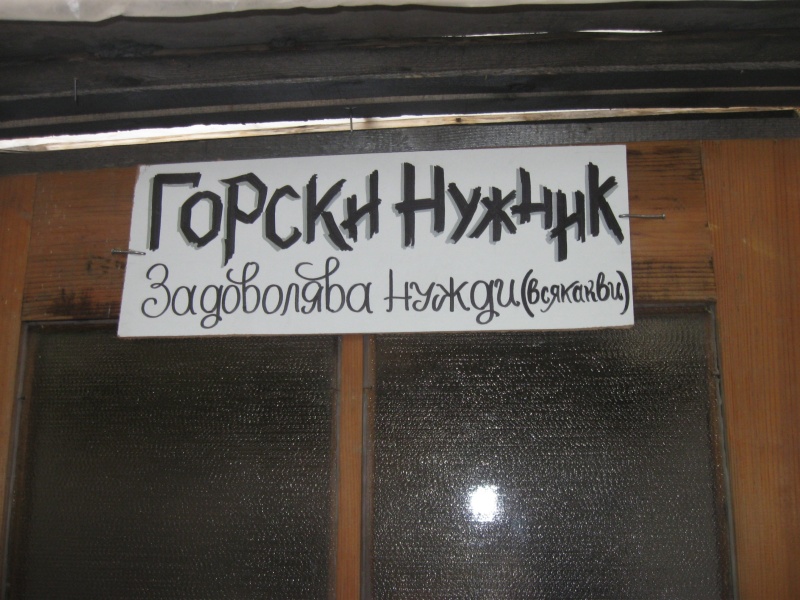 Горски Нужник
Задоволява нужди (всякакви)